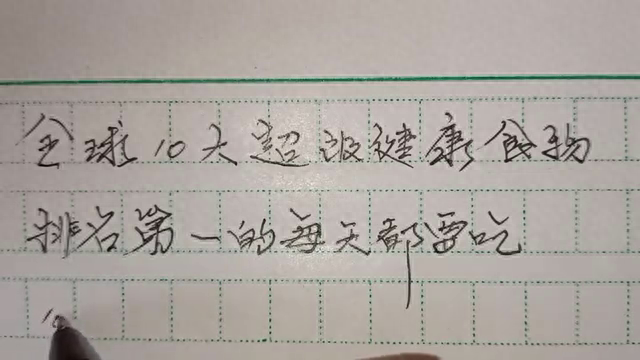 全球10大超级健康食物
排名第一的每天都要吃
10